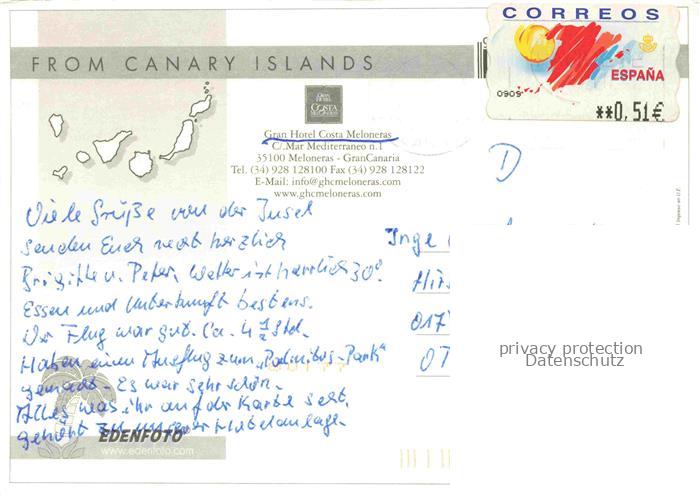 CORREOS
ESPAÑA
0909
**0,51€
FROM CANARY ISLANDS
GRAN HOTEL
COSTA
MELONERAS
Gran Hotel Costa Meloneras
C/.Mar Mediterraneo n.1
35100 Meloneras - GranCanaria
Tel. (34) 928 128100 Fax (34) 928 128122
E-Mail: info@ghcmeloneras.com
www.ghcmeloneras.com
D
Viele Grüße von der Insel
senden Euch recht herzlich
Brigitte u. Peter, Wetter ist herrlich 30°
Essen und Unterkunft bestens.
Der Flug war gut. Ca. 4 1/2 Std.
Haben einen Ausflug zum „Palmitos-Park"
gemacht - Es war sehr schön.
Alles was ihr auf der Karte seht,
gehört zu unserer Hotelanlage.
Inge
017
OT
privacy protection
Datenschutz
EDENFOTO
www.edenfoto.com